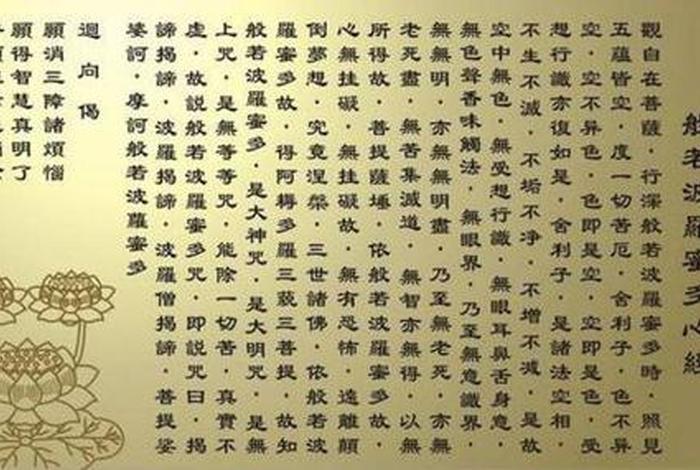 般若波羅蜜多心經
觀自在菩薩·行深般若波羅蜜多時·照見
五蘊皆空·度一切苦厄·舍利子·色不异
空·空不异色·色即是空·空即是色·受
想行識亦復如是·舍利子·是諸法空相·
不生不滅·不垢不净·不增不减·是故
空中無色·無受想行識·無眼耳鼻舌身意·
無色聲香味觸法·無眼界·乃至無意識界·
無無明·亦無無明盡·乃至無老死·亦無
老死盡·無苦集滅道·無智亦無得·以無
所得故·菩提薩埵·依般若波羅蜜多故·
心無挂礙·無挂礙故·無有恐怖·遠離顛
倒夢想·究竟涅槃·三世諸佛·依般若波
羅蜜多故·得阿耨多羅三藐三菩提·故知
般若波羅蜜多·是大神咒·是大明咒·是無
上咒·是無等等咒·能除一切苦·真實不
虛·故説般若波羅蜜多咒·即説咒曰·揭
諦揭諦·波羅揭諦·波羅僧揭諦·菩提娑
婆訶·摩訶般若波羅蜜多
迴向偈
願消三障諸煩惱
願得智慧真明了